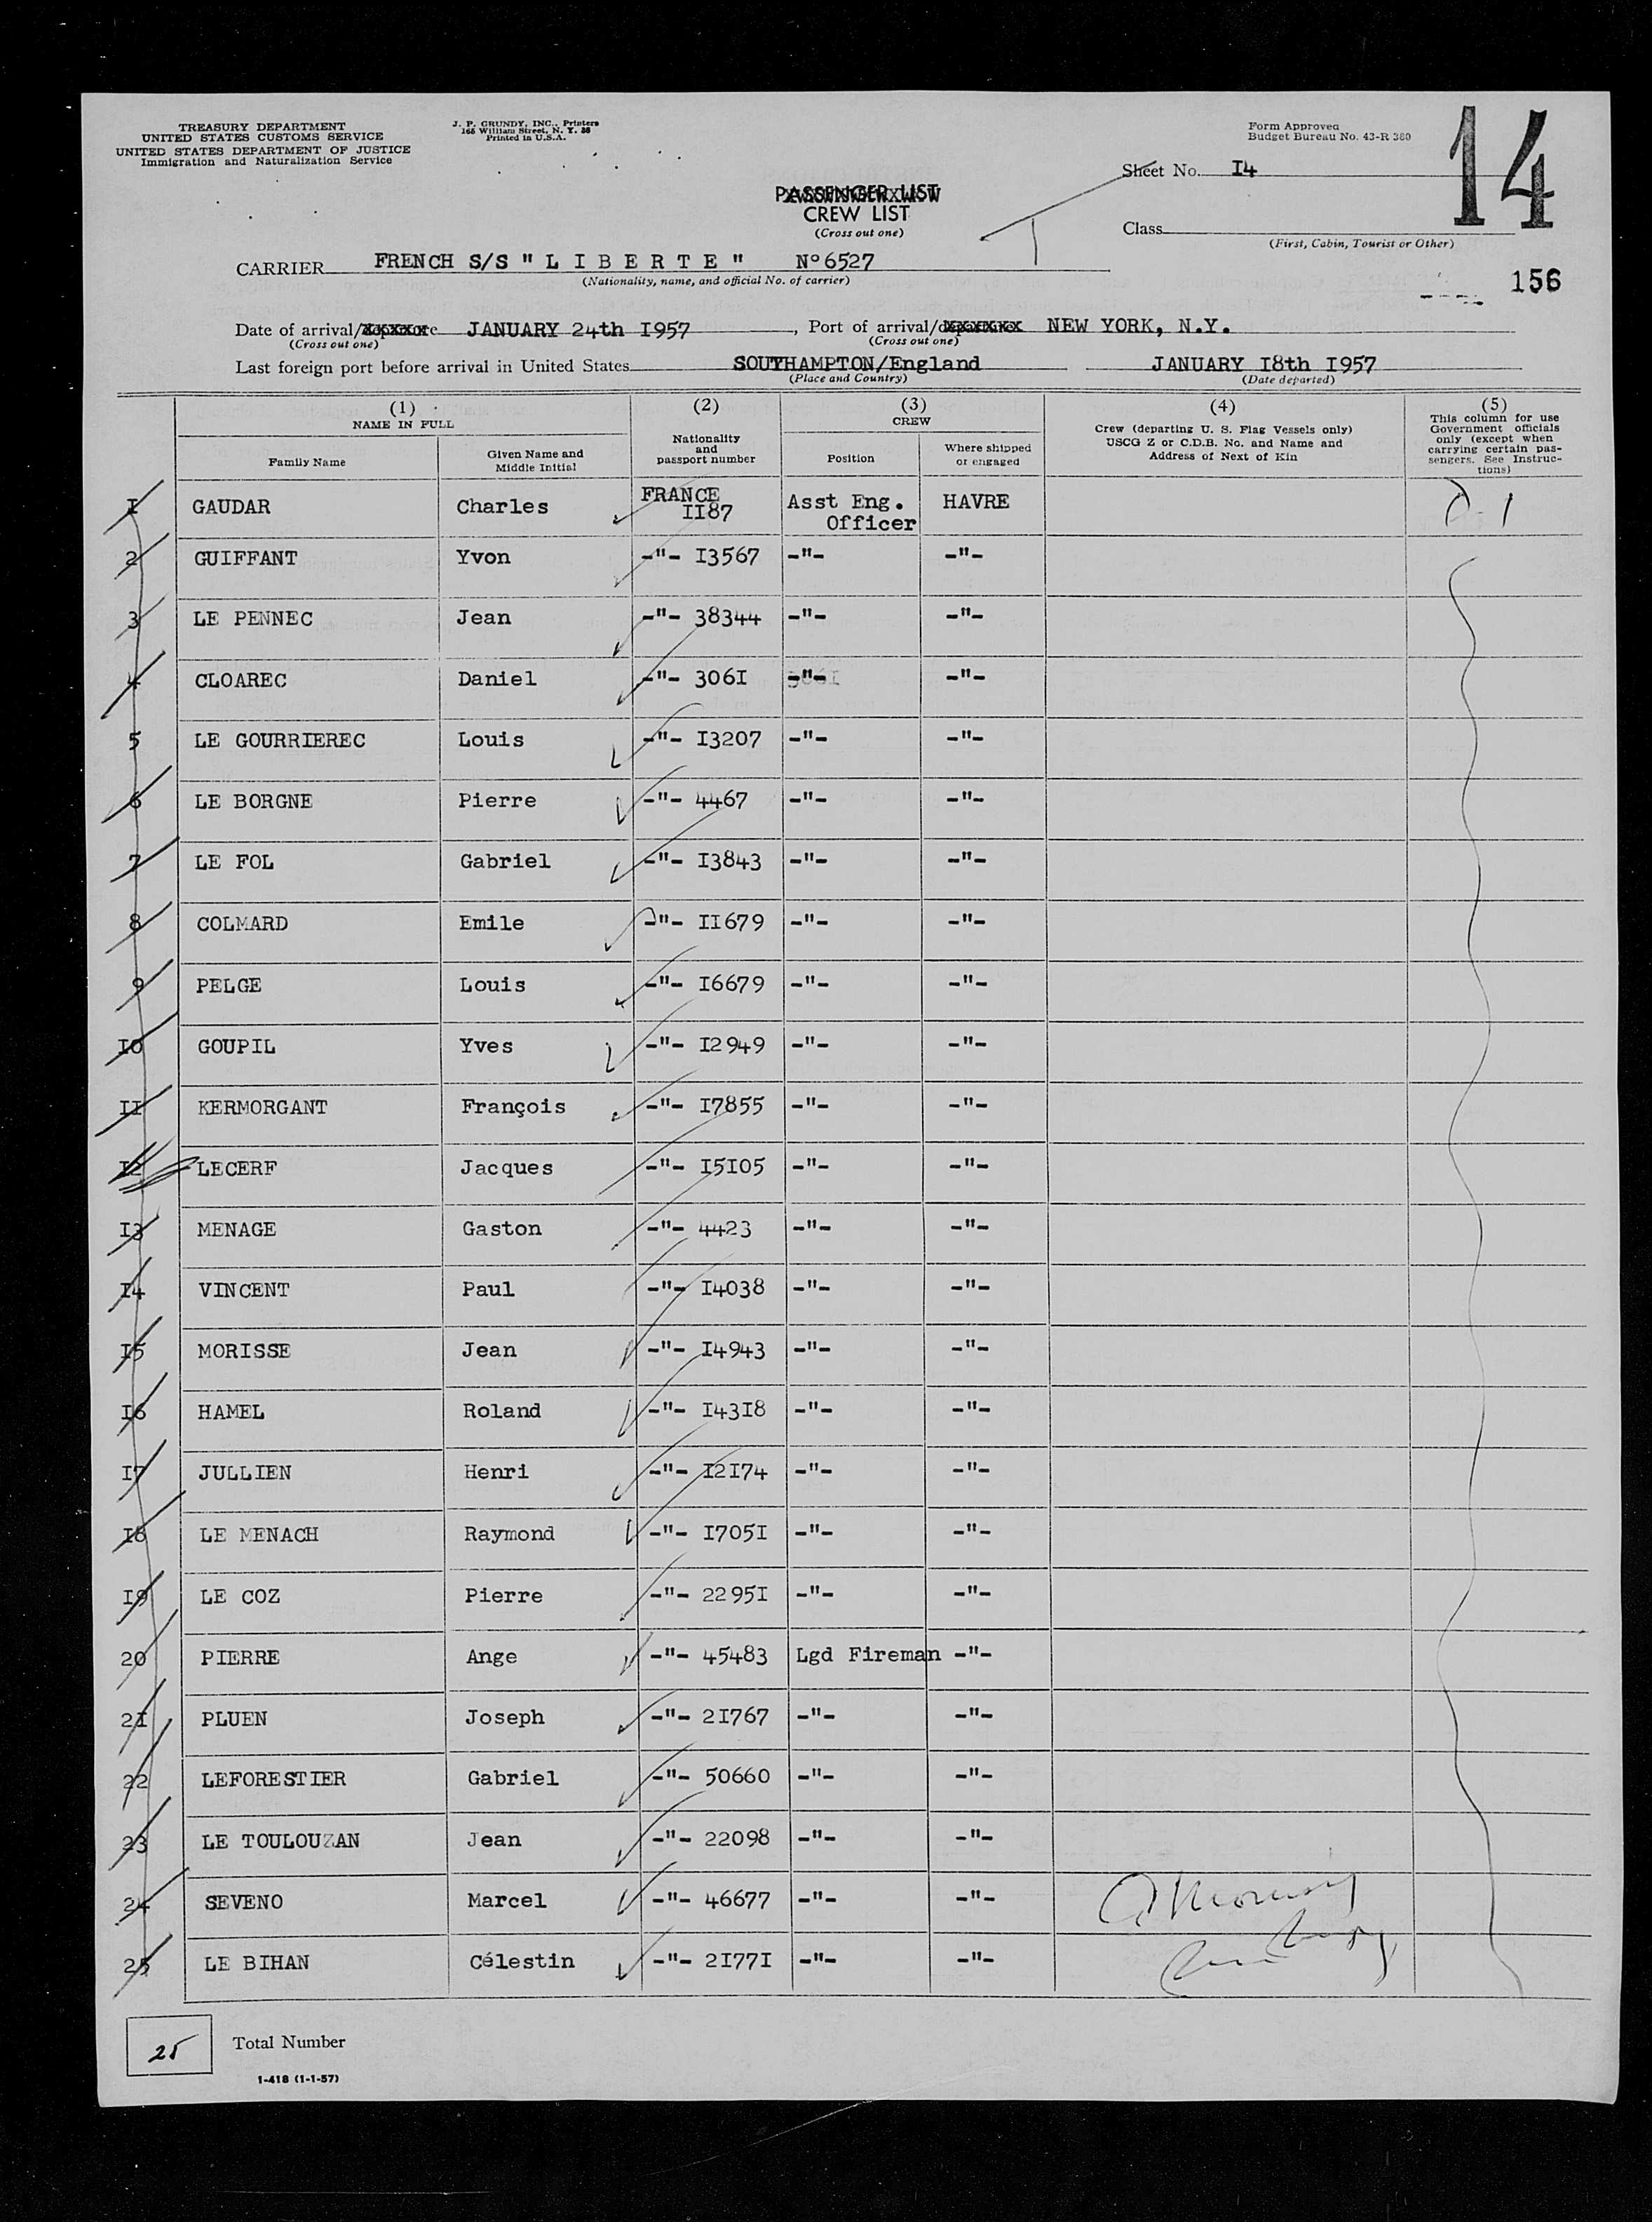 TREASURY DEPARTMENT
UNITED STATES CUSTOMS SERVICE
UNITED STATES DEPARTMENT OF JUSTICE
Immigration and Naturalization Service
J. P. GRUNDY, INC., Printers
165 William Street, N. Y. 38
Printed in U.S.A.
Form Approved
Budget Bureau No. 43-R 380
14
Sheet No. I4
PASSENGER LIST
CREW LIST
(Cross out one)
Class
(First, Cabin, Tourist or Other)
CARRIER FRENCH S/S "L I B E R T E" N°6527
(Nationality, name, and official No. of carrier)
156
Date of arrival/departure JANUARY 24th I957, Port of arrival/departure NEW YORK, N.Y.
(Cross out one) (Cross out one)
Last foreign port before arrival in United States SOUTHAMPTON/England JANUARY I8th I957
(Place and Country) (Date departed)
(1) NAME IN FULL
Family Name
Given Name and Middle Initial
(2)
Nationality and passport number
(3) CREW
Position
Where shipped or engaged
(4)
Crew (departing U. S. Flag Vessels only)
USCG Z or C.D.B. No. and Name and
Address of Next of Kin
(5)
This column for use
Government officials
only (except when
carrying certain pas-
sengers. See Instruc-
tions)
I GAUDAR Charles FRANCE II87 Asst Eng. Officer HAVRE D-1
2 GUIFFANT Yvon -"- I3567 -"- -"-
3 LE PENNEC Jean -"- 38344 -"- -"-
4 CLOAREC Daniel -"- 306I -"- -"-
5 LE GOURRIEREC Louis -"- I3207 -"- -"-
6 LE BORGNE Pierre -"- 4467 -"- -"-
7 LE FOL Gabriel -"- I3843 -"- -"-
8 COLMARD Emile -"- II679 -"- -"-
9 PELGE Louis -"- I6679 -"- -"-
I0 GOUPIL Yves -"- I2949 -"- -"-
II KERMORGANT François -"- I7855 -"- -"-
I2 LECERF Jacques -"- I5I05 -"- -"-
I3 MENAGE Gaston -"- 4423 -"- -"-
I4 VINCENT Paul -"- I4038 -"- -"-
I5 MORISSE Jean -"- I4943 -"- -"-
I6 HAMEL Roland -"- I43I8 -"- -"-
I7 JULLIEN Henri -"- I2I74 -"- -"-
I8 LE MENACH Raymond -"- I705I -"- -"-
I9 LE COZ Pierre -"- 2295I -"- -"-
20 PIERRE Ange -"- 45483 Lgd Fireman -"-
2I PLUEN Joseph -"- 2I767 -"- -"-
22 LEFORESTIER Gabriel -"- 50660 -"- -"-
23 LE TOULOUZAN Jean -"- 22098 -"- -"-
24 SEVENO Marcel -"- 46677 -"- -"-
25 LE BIHAN Célestin -"- 2I77I -"- -"-
25 Total Number
1-418 (1-1-57)